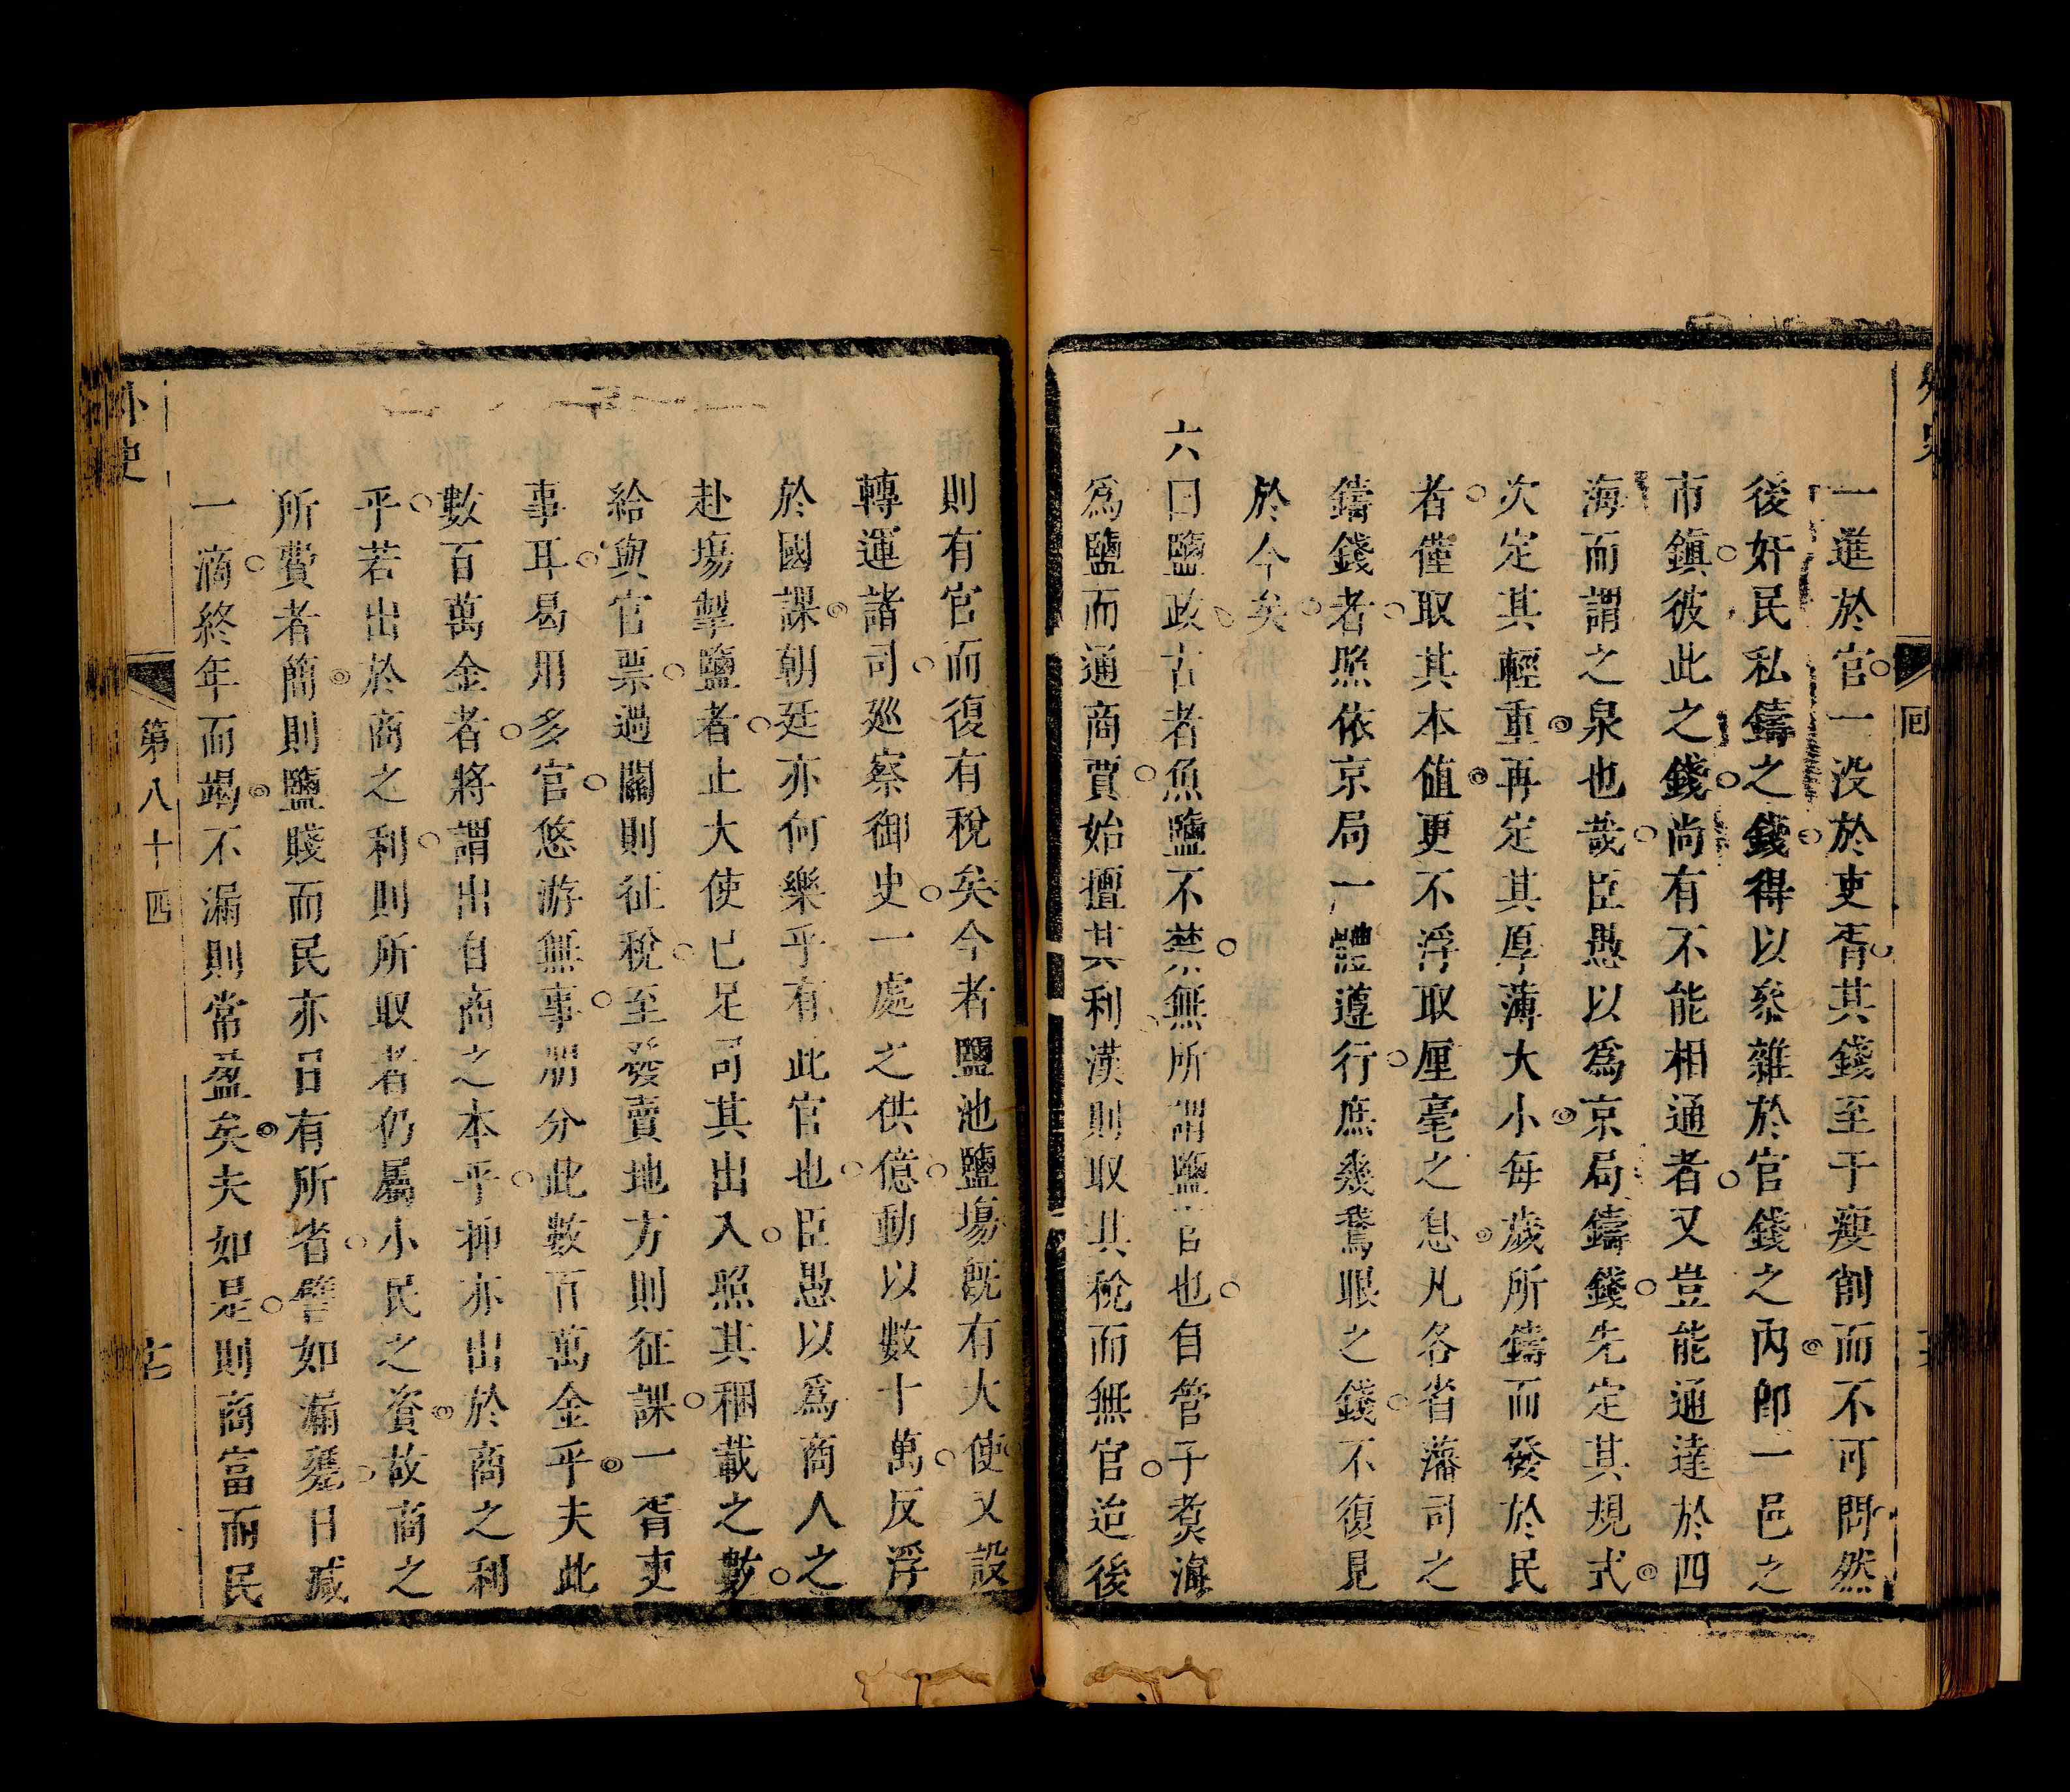 外史
回
一進於官一没於吏胥其錢至于瘦削而不可問然
後奸民私鑄之錢得以叅雜於官錢之內即一邑之
市鎮彼此之錢尚有不能相通者又豈能通達於四
海而謂之泉也哉臣愚以爲京局鑄錢先定其規式
次定其輕重再定其厚薄大小每歲所鑄而發於民
者僅取其本值更不浮取厘毫之息凡各省藩司之
鑄錢者照依京局一體遵行庶幾鵞眼之錢不復見
於今矣
六曰鹽政古者魚鹽不禁無所謂鹽官也自管子煑海
爲鹽而通商賈始擅其利漢則取其稅而無官迨後
則有官而復有稅矣今者鹽池鹽塲旣有大使又設
轉運諸司廵察御史一處之供億動以數十萬反浮
於國課朝廷亦何樂乎有此官也臣愚以爲商人之
赴塲掣鹽者止大使已足司其出入照其稇載之數
給與官票過關則征稅至發賣地方則征課一胥吏
事耳曷用多官悠游無事朋分此數百萬金乎夫此
數百萬金者將謂出自商之本乎抑亦出於商之利
乎若出於商之利則所取者仍屬小民之資故商之
所費者簡則鹽賤而民亦日有所省譬如漏甕日減
一滴終年而竭不漏則常盈矣夫如是則商富而民
外史
第八十四
七